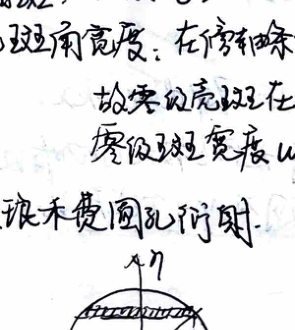 斑角宽度：在傍轴条
故零级亮斑在
零级斑宽度
琅禾费圆孔衍射.
η